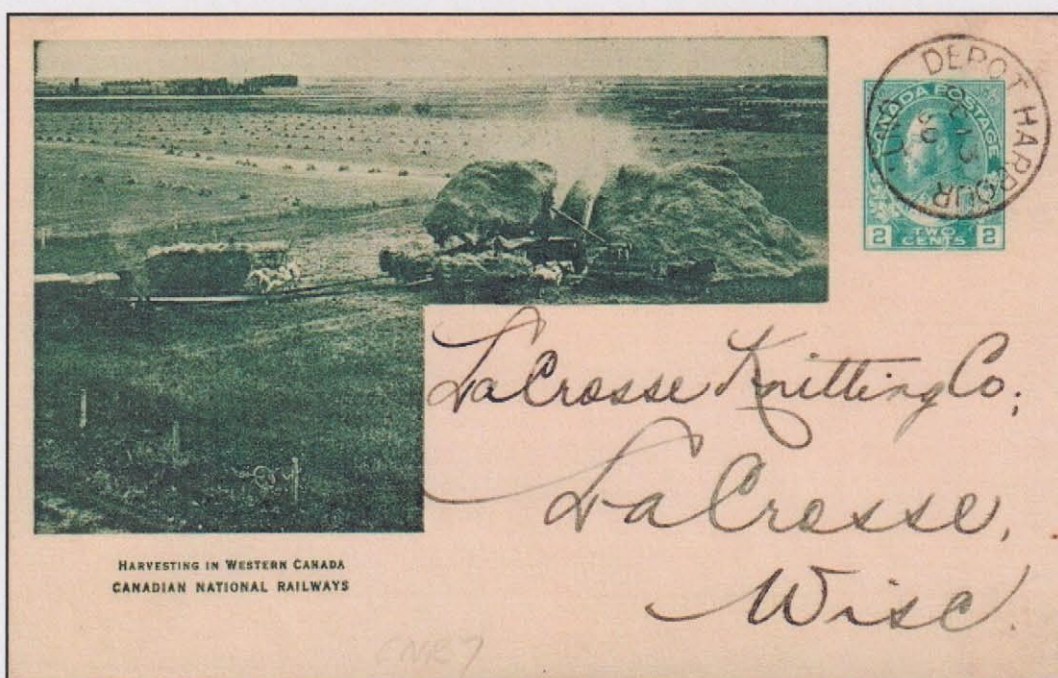 DEPOT HARBOUR
CANADA POSTAGE
2 TWO CENTS 2
LaCrosse Knitting Co;
LaCrosse,
Wisc.
HARVESTING IN WESTERN CANADA
CANADIAN NATIONAL RAILWAYS